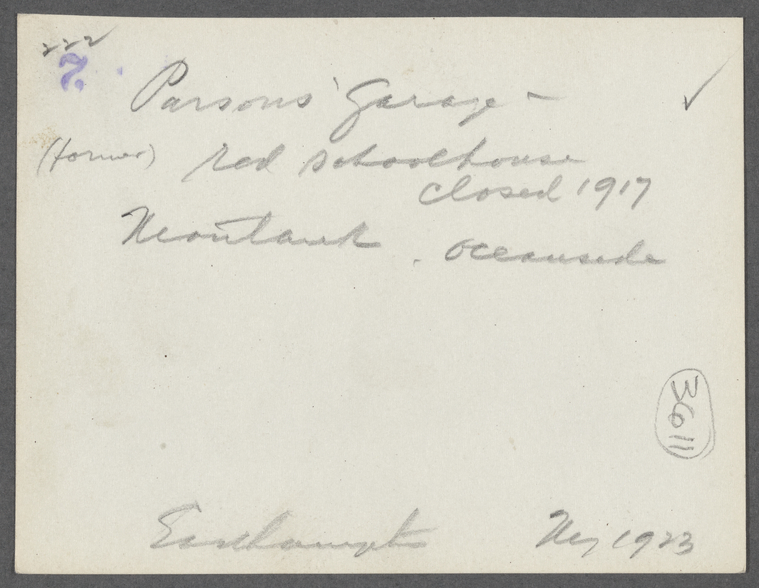 222
7.
Parsons' Garage –
(former) red schoolhouse
closed 1917
Montauk . Oceanside
3611
Easthampton Ny 1923